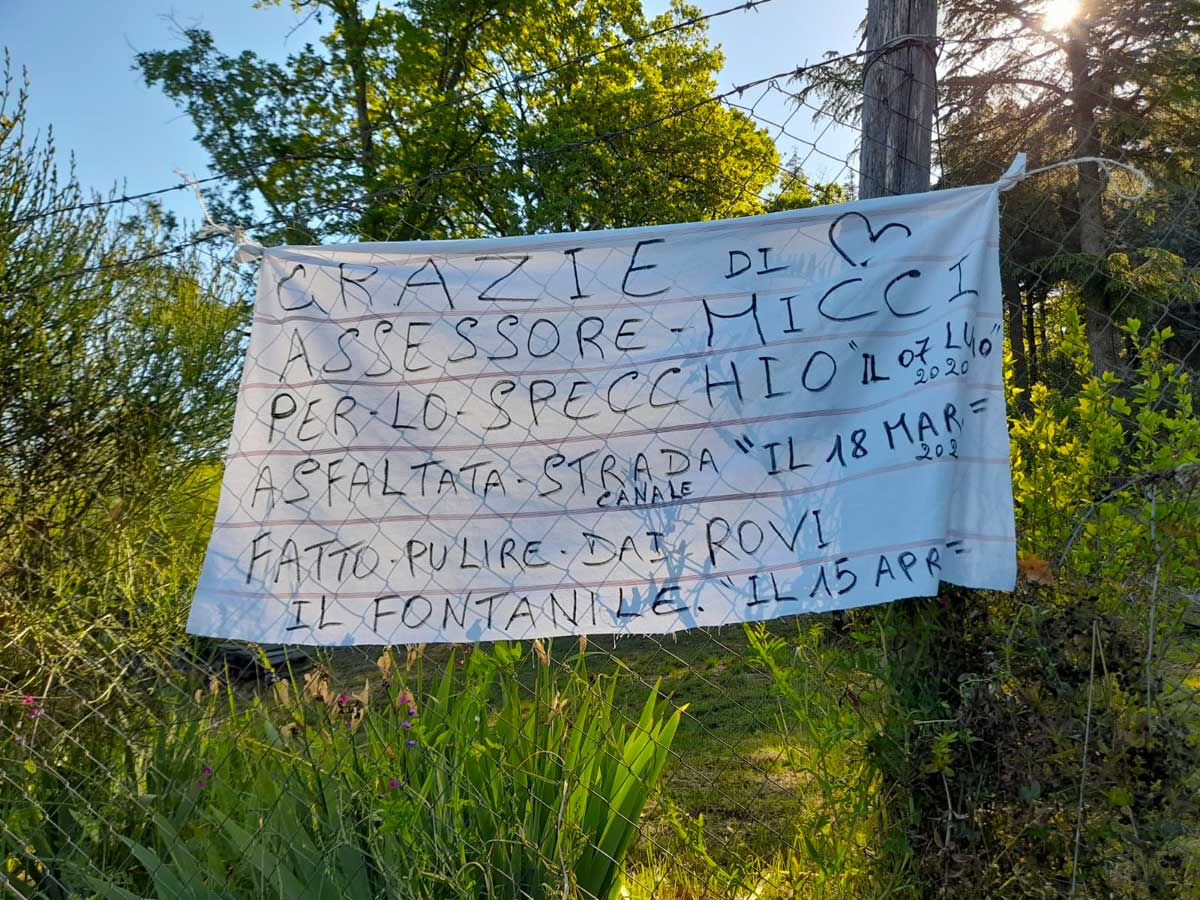 GRAZIE DI
ASSESSORE - MICCI
PER - LO - SPECCHIO "IL 07 LUG"
2020
ASFALTATA - STRADA "IL 18 MAR =
CANALE
FATTO - PULIRE - DAI ROVI
IL FONTANILE. "IL 15 APR =